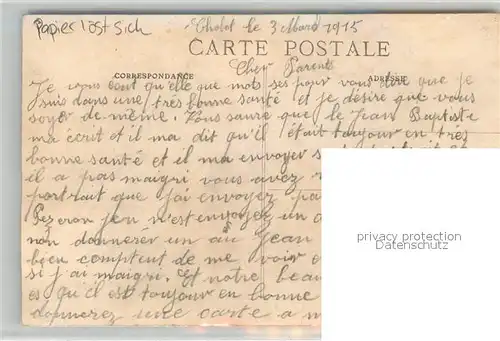 Papier löst sich
Cholet le 3 Mars 1915
CARTE POSTALE
Cher Parents
CORRESPONDANCE
ADRESSE
Je vous ecrit qu'elle que mots ses pour vous dire que je
suis dans une tres bonne santé et je désire que vous
soyer de même. Vous saure que le Jean Baptiste
ma écrit et il ma dit qu'il était toujour en tres
bonne santé et il ma envoyer s
il a pas maigri vous avez
portrait que j'ai envoyer pa
Pezeron jeu n'est envoyez un a
non donnerér un au Jean
been comptent de me voir
si j'ai maigri. Et notre beau
es qu'il est toujour en bonne
donnerez une carte a m
privacy protection
Datenschutz